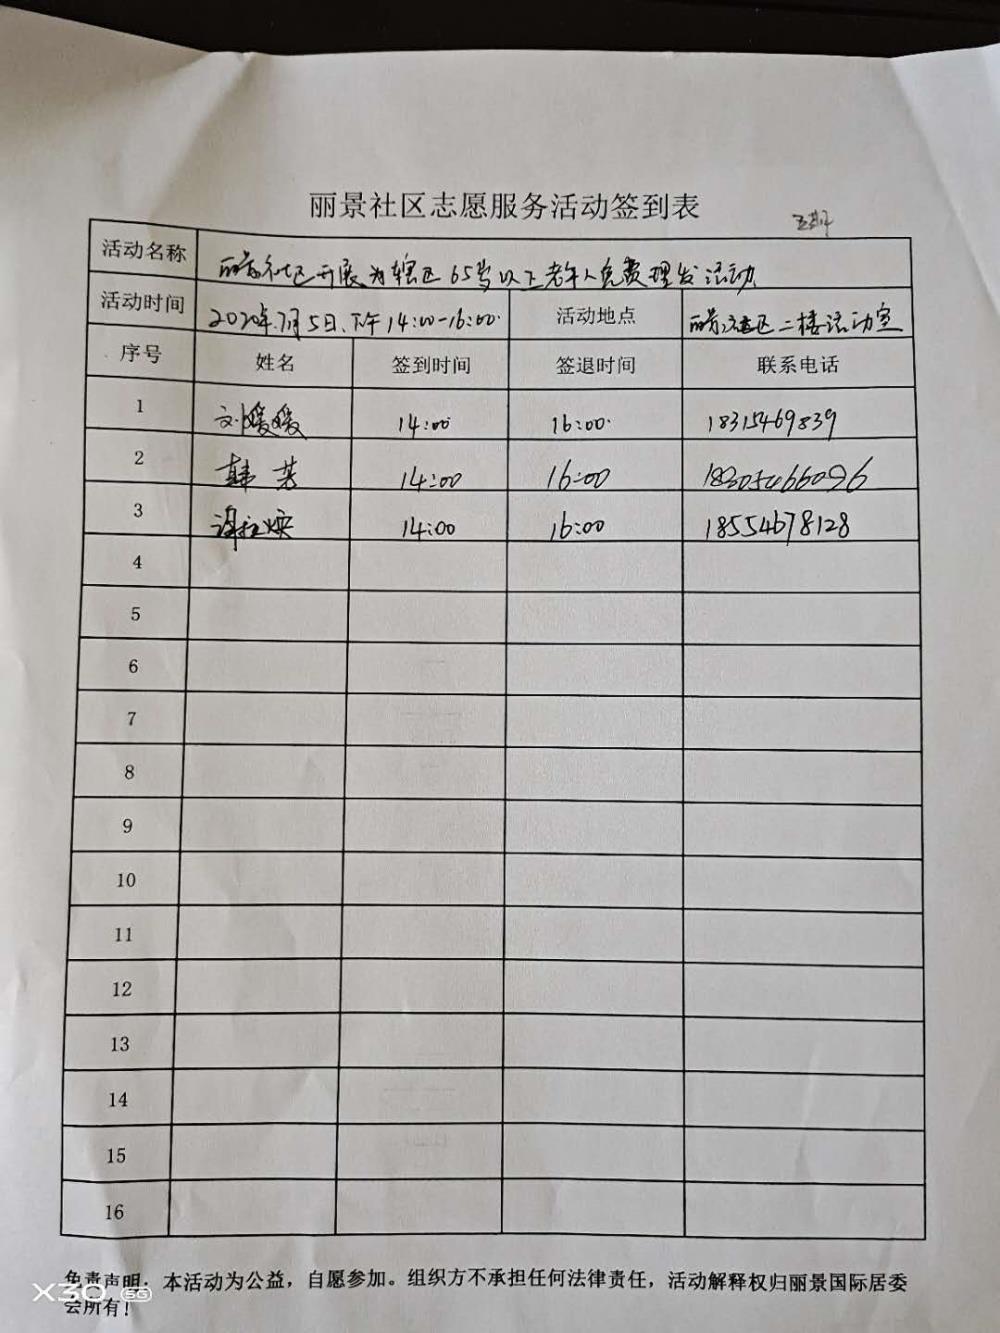 丽景社区志愿服务活动签到表
活动名称 丽景社区开展为辖区65岁以上老年人免费理发活动
活动时间 2020年7月5日、下午14:00-16:00. 活动地点 丽景社区二楼活动室
序号 姓名 签到时间 签退时间 联系电话
1 刘媛媛 14:00 16:00. 18315469839
2 韩芳 14:00 16:00 18305466096
3 14:00 16:00 18554678128
4
5
6
7
8
9
10
11
12
13
14
15
16
免责声明：本活动为公益，自愿参加。组织方不承担任何法律责任，活动解释权归丽景国际居委
会所有！
X30 5G